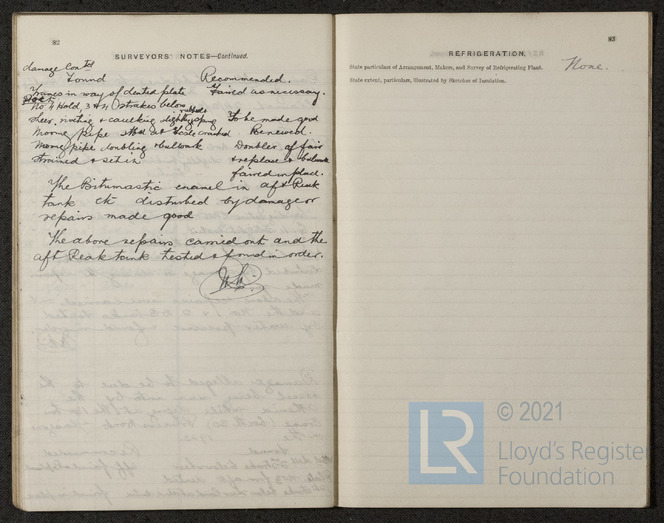 82
SURVEYORS' NOTES—Continued.
damage Contd
Found Recommended.
Frames in way of dented plate Faired as necessary.
No 4 Hold, 3 & 4 strakes below
sheer, riveting & caulking slightly To be made good
Mooring Pipe cracked Renewed.
Mooring pipe doubling & bulwark Doubler off fair
strained & set in & replace & bulwark
faired in place.
The Bitumastic enamel in aft Peak
tank etc disturbed by damage or
repairs made good
The above repairs carried out and the
aft Peak tank tested & found in order.
83
REFRIGERATION.
State particulars of Arrangement, Makers, and Survey of Refrigerating Plant. None.
State extent, particulars, illustrated by Sketches of Insulation.
LR © 2021
Lloyd's Register
Foundation